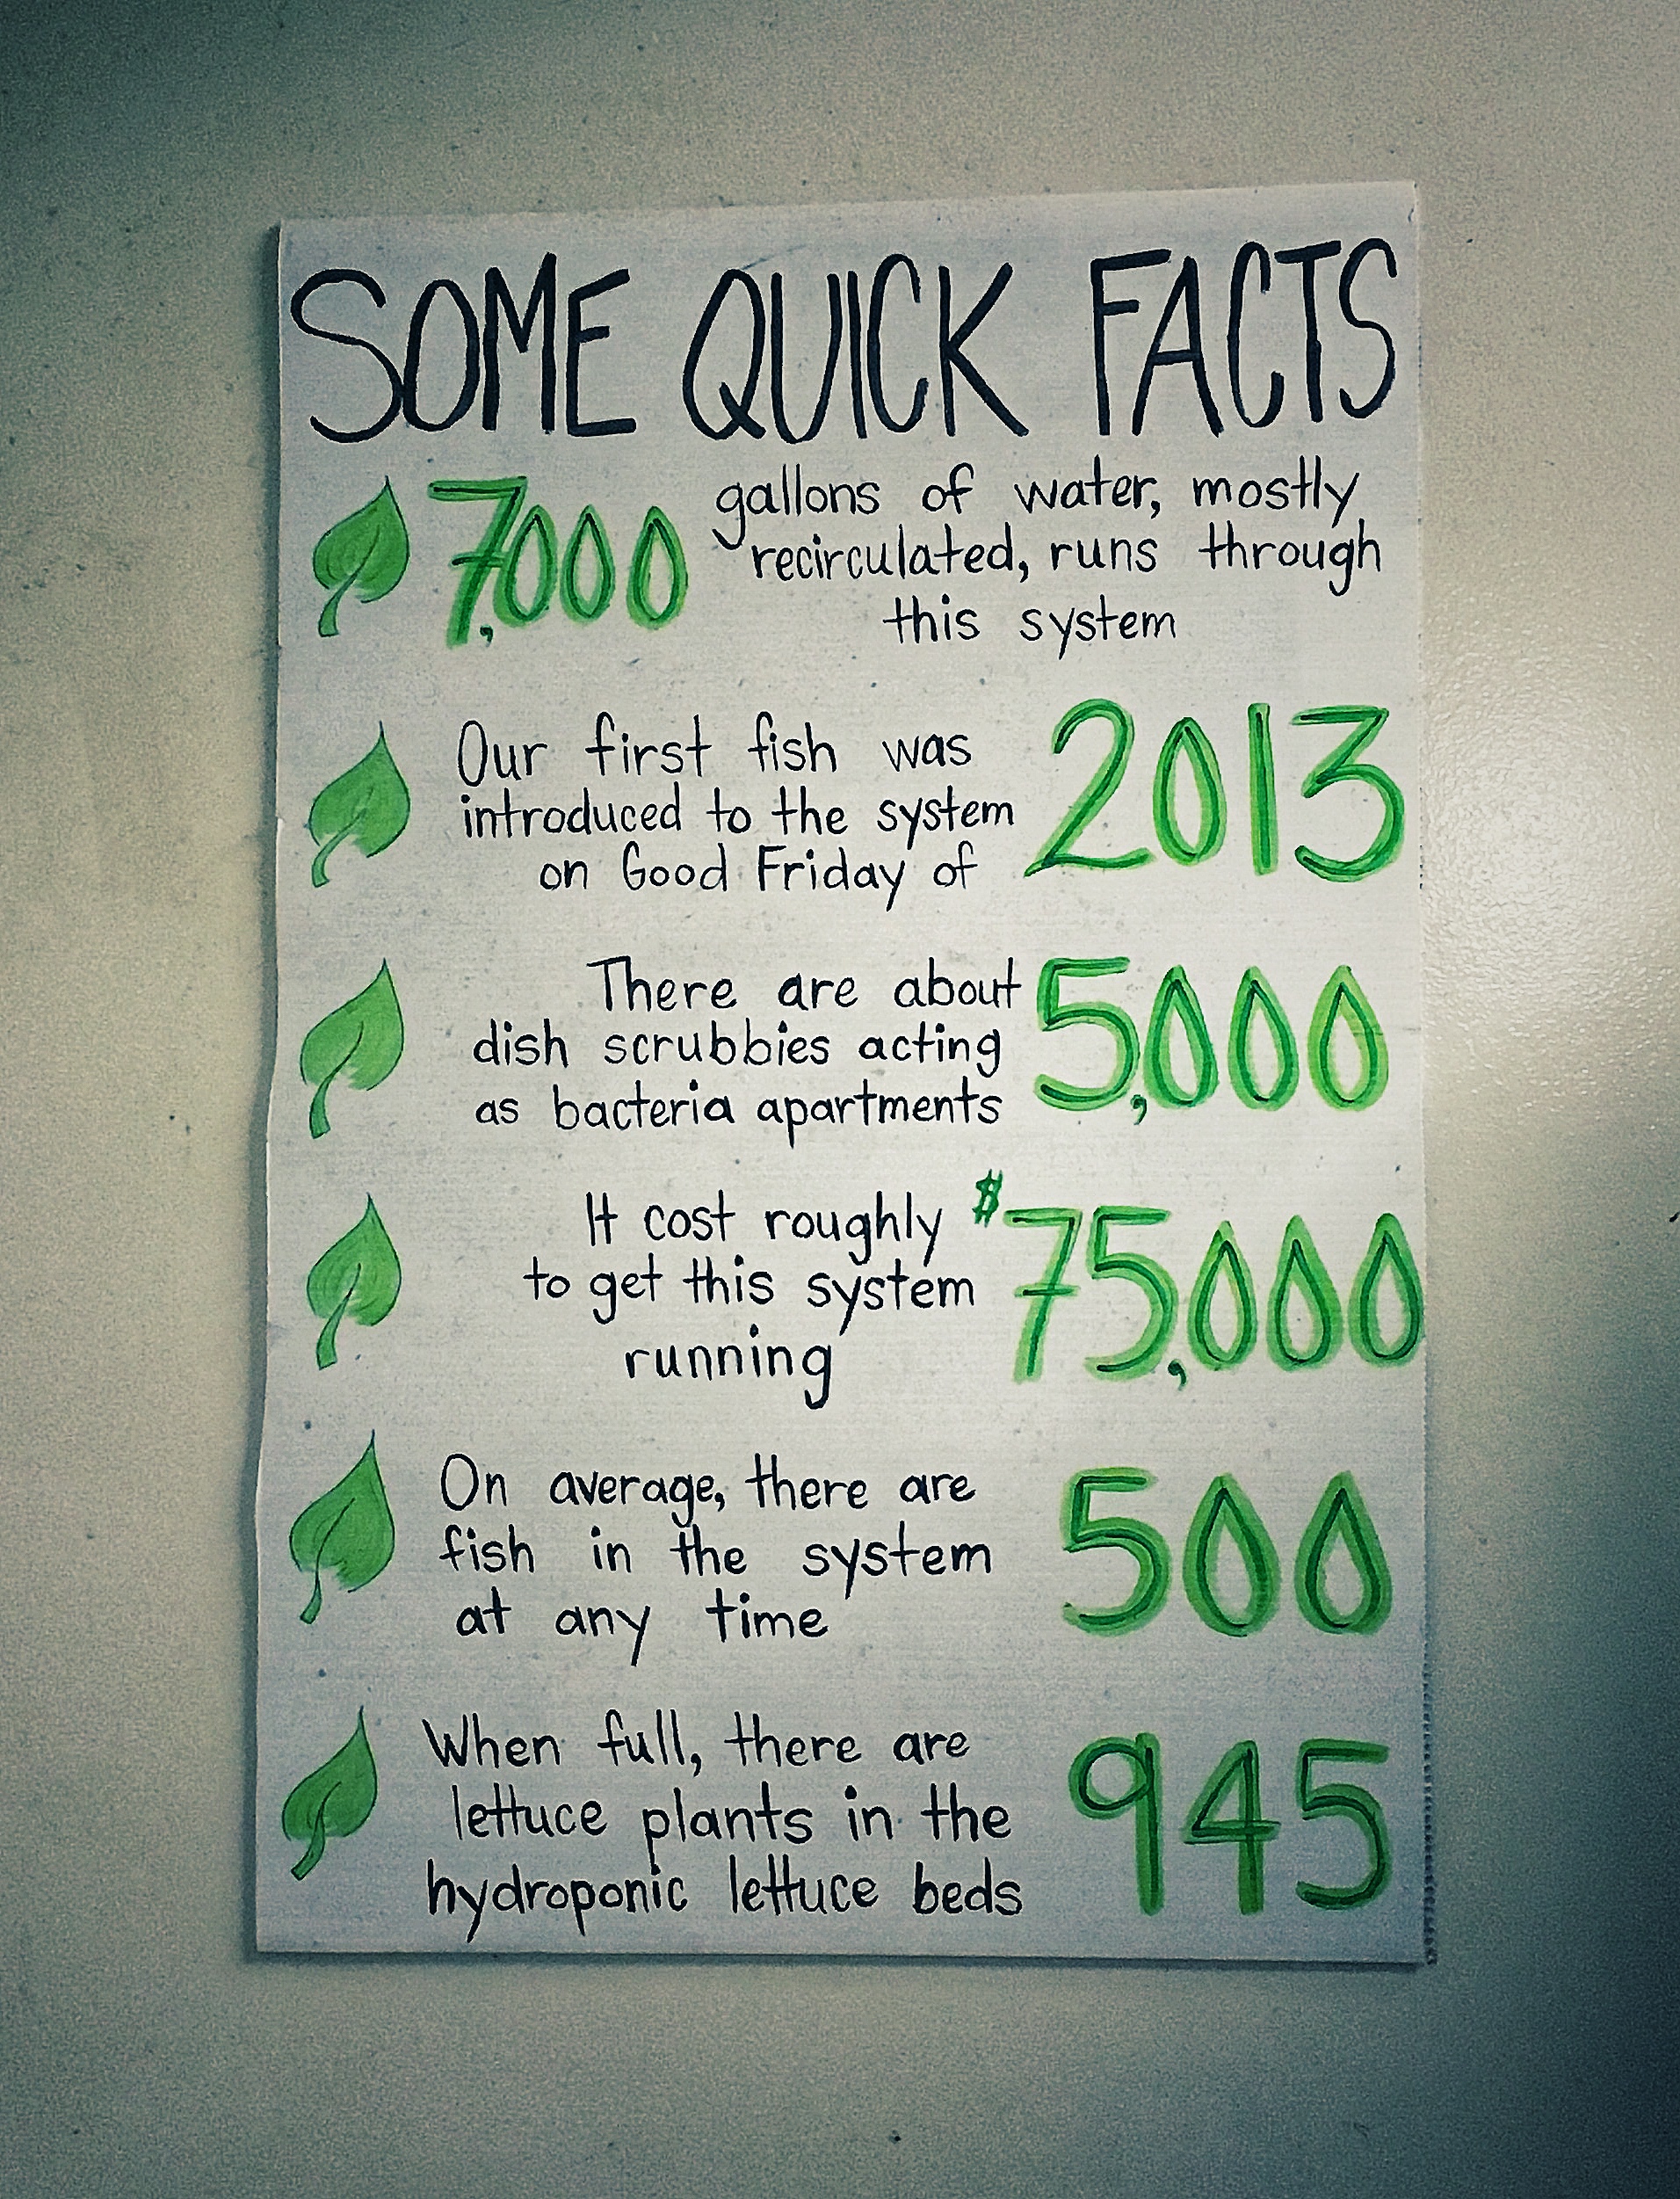 SOME QUICK FACTS
7,000 gallons of water, mostly
recirculated, runs through
this system
Our first fish was
introduced to the system
on Good Friday of 2013
There are about 5,000
dish scrubbies acting
as bacteria apartments
It cost roughly $75,000
to get this system
running
On average, there are 500
fish in the system
at any time
When full, there are 945
lettuce plants in the
hydroponic lettuce beds